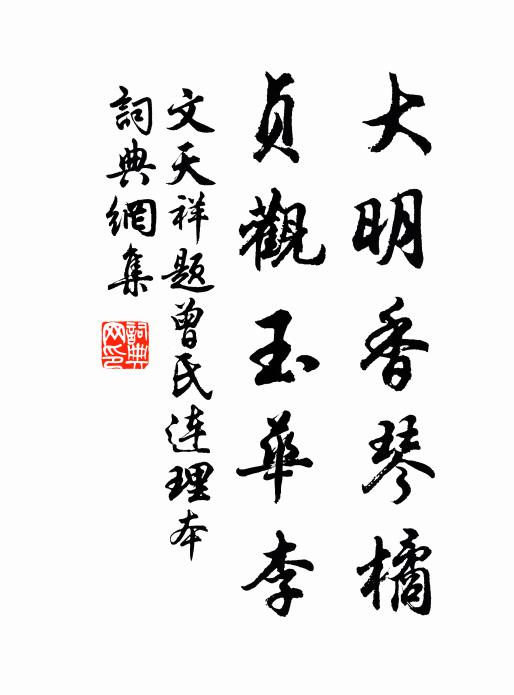 大明香琴橘
貞觀玉華李
文天祥題曾氏連理本
詞典網集
詞典網印